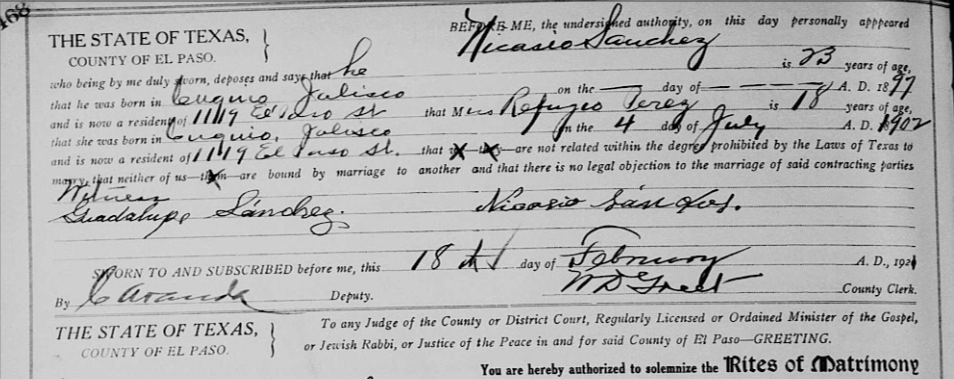 468
BEFORE ME, the undersigned authority, on this day personally apppeared
THE STATE OF TEXAS,
COUNTY OF EL PASO.
Nicasio Sanchez is 23 years of age,
who being by me duly sworn, deposes and says that he
that he was born in Jalisco on the — day of — A. D. 1897
and is now a resident of 1119 El Paso St that Miss Refugio Perez is 18 years of age,
that she was born in Jalisco on the 4 day of July A. D. 1902
and is now a resident of 1119 El Paso St. that are not related within the degree prohibited by the Laws of Texas to
marry, that neither of us—them—are bound by marriage to another and that there is no legal objection to the marriage of said contracting parties
Witness
Guadalupe Sánchez. Nicasio Sánchez.
SWORN TO AND SUBSCRIBED before me, this 18th day of February A. D., 1921
By C Aranda Deputy. W D Greet County Clerk.
THE STATE OF TEXAS,
COUNTY OF EL PASO.
To any Judge of the County or District Court, Regularly Licensed or Ordained Minister of the Gospel,
or Jewish Rabbi, or Justice of the Peace in and for said County of El Paso—GREETING.
You are hereby authorized to solemnize the Rites of Matrimony